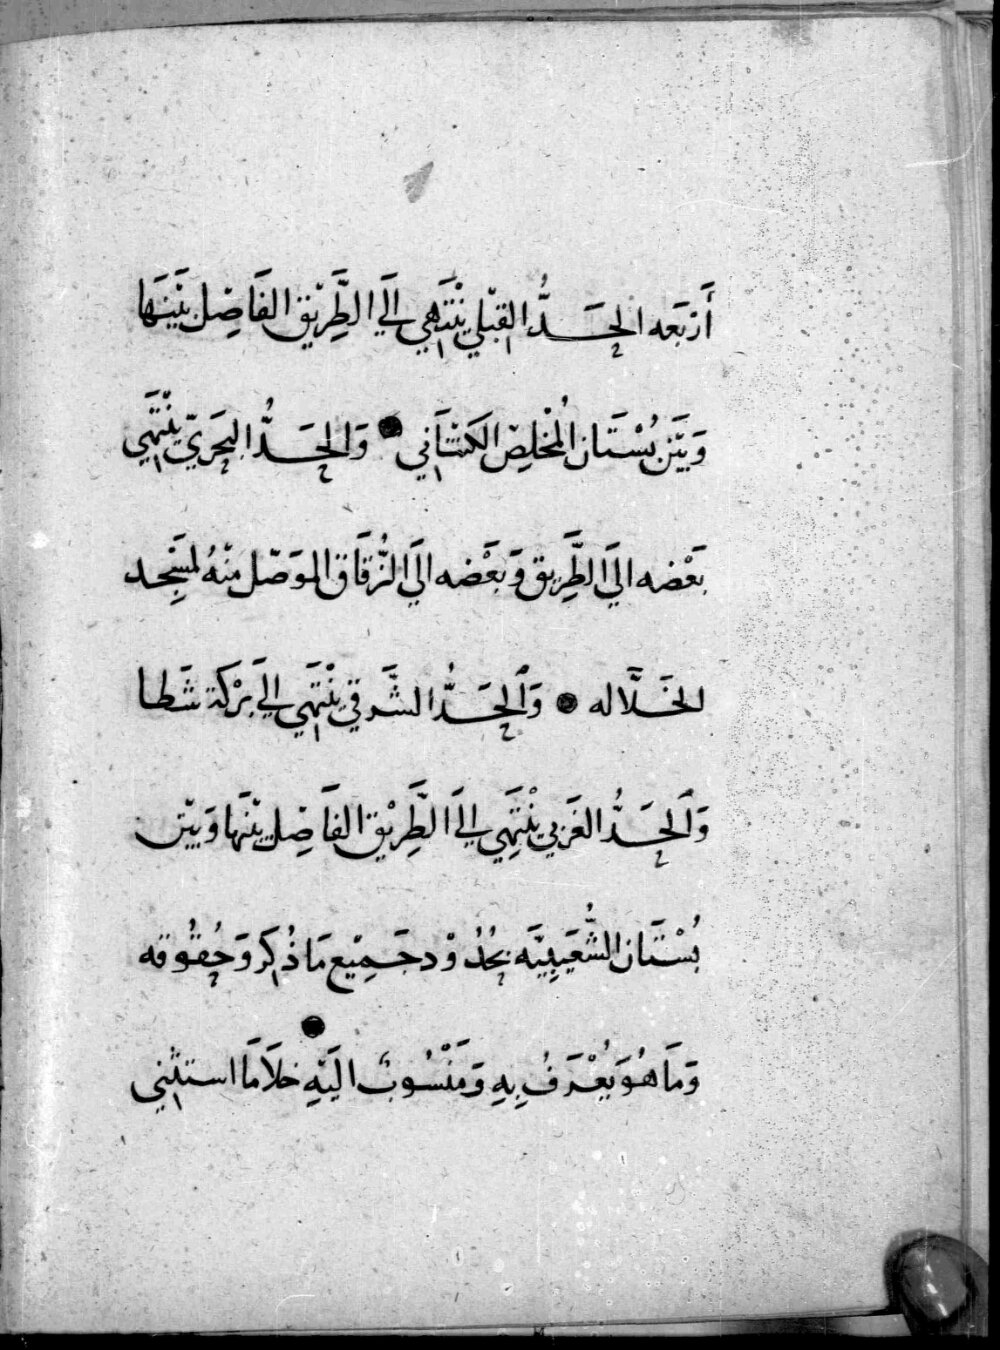 أَرْبَعَه الحَدُّ القِبْلي يَنْتَهِي إلَي الطَّرِيْق الفَاضِل بَيْنَهَا
وَبَيْنَ بُسْتَان المُخْلِصْ الكَتَّاَني ● وَالحَدُّ البَحَريّ يَنْتَهِي
بَعْضه الَي الطَّرِيق وَبَعْضه الَي الزُّقَاق المُوَصّل مِنْهُ لمَسْجِد
الخَلَّاله ● وَالحَدُّ الشَّرقي يَنْتَهِي إلَي بَرْكَة شَطا
وَالحَدُّ الغَرْبي يَنْتَهِي إلَي الطَّرِيْق الفَاضِل بَيْنَهَا وَبَيْن
بُسْتَان الشُّعَيْبِيَّه بحُدُوْد جَمِيْع مَا ذُكِر وَحُقُوقه
وَمَا هُوَ يُعْرَفُ بِهِ وَمَنْسُوبٌ الَيْهِ ● خَلَا مَا استثْني